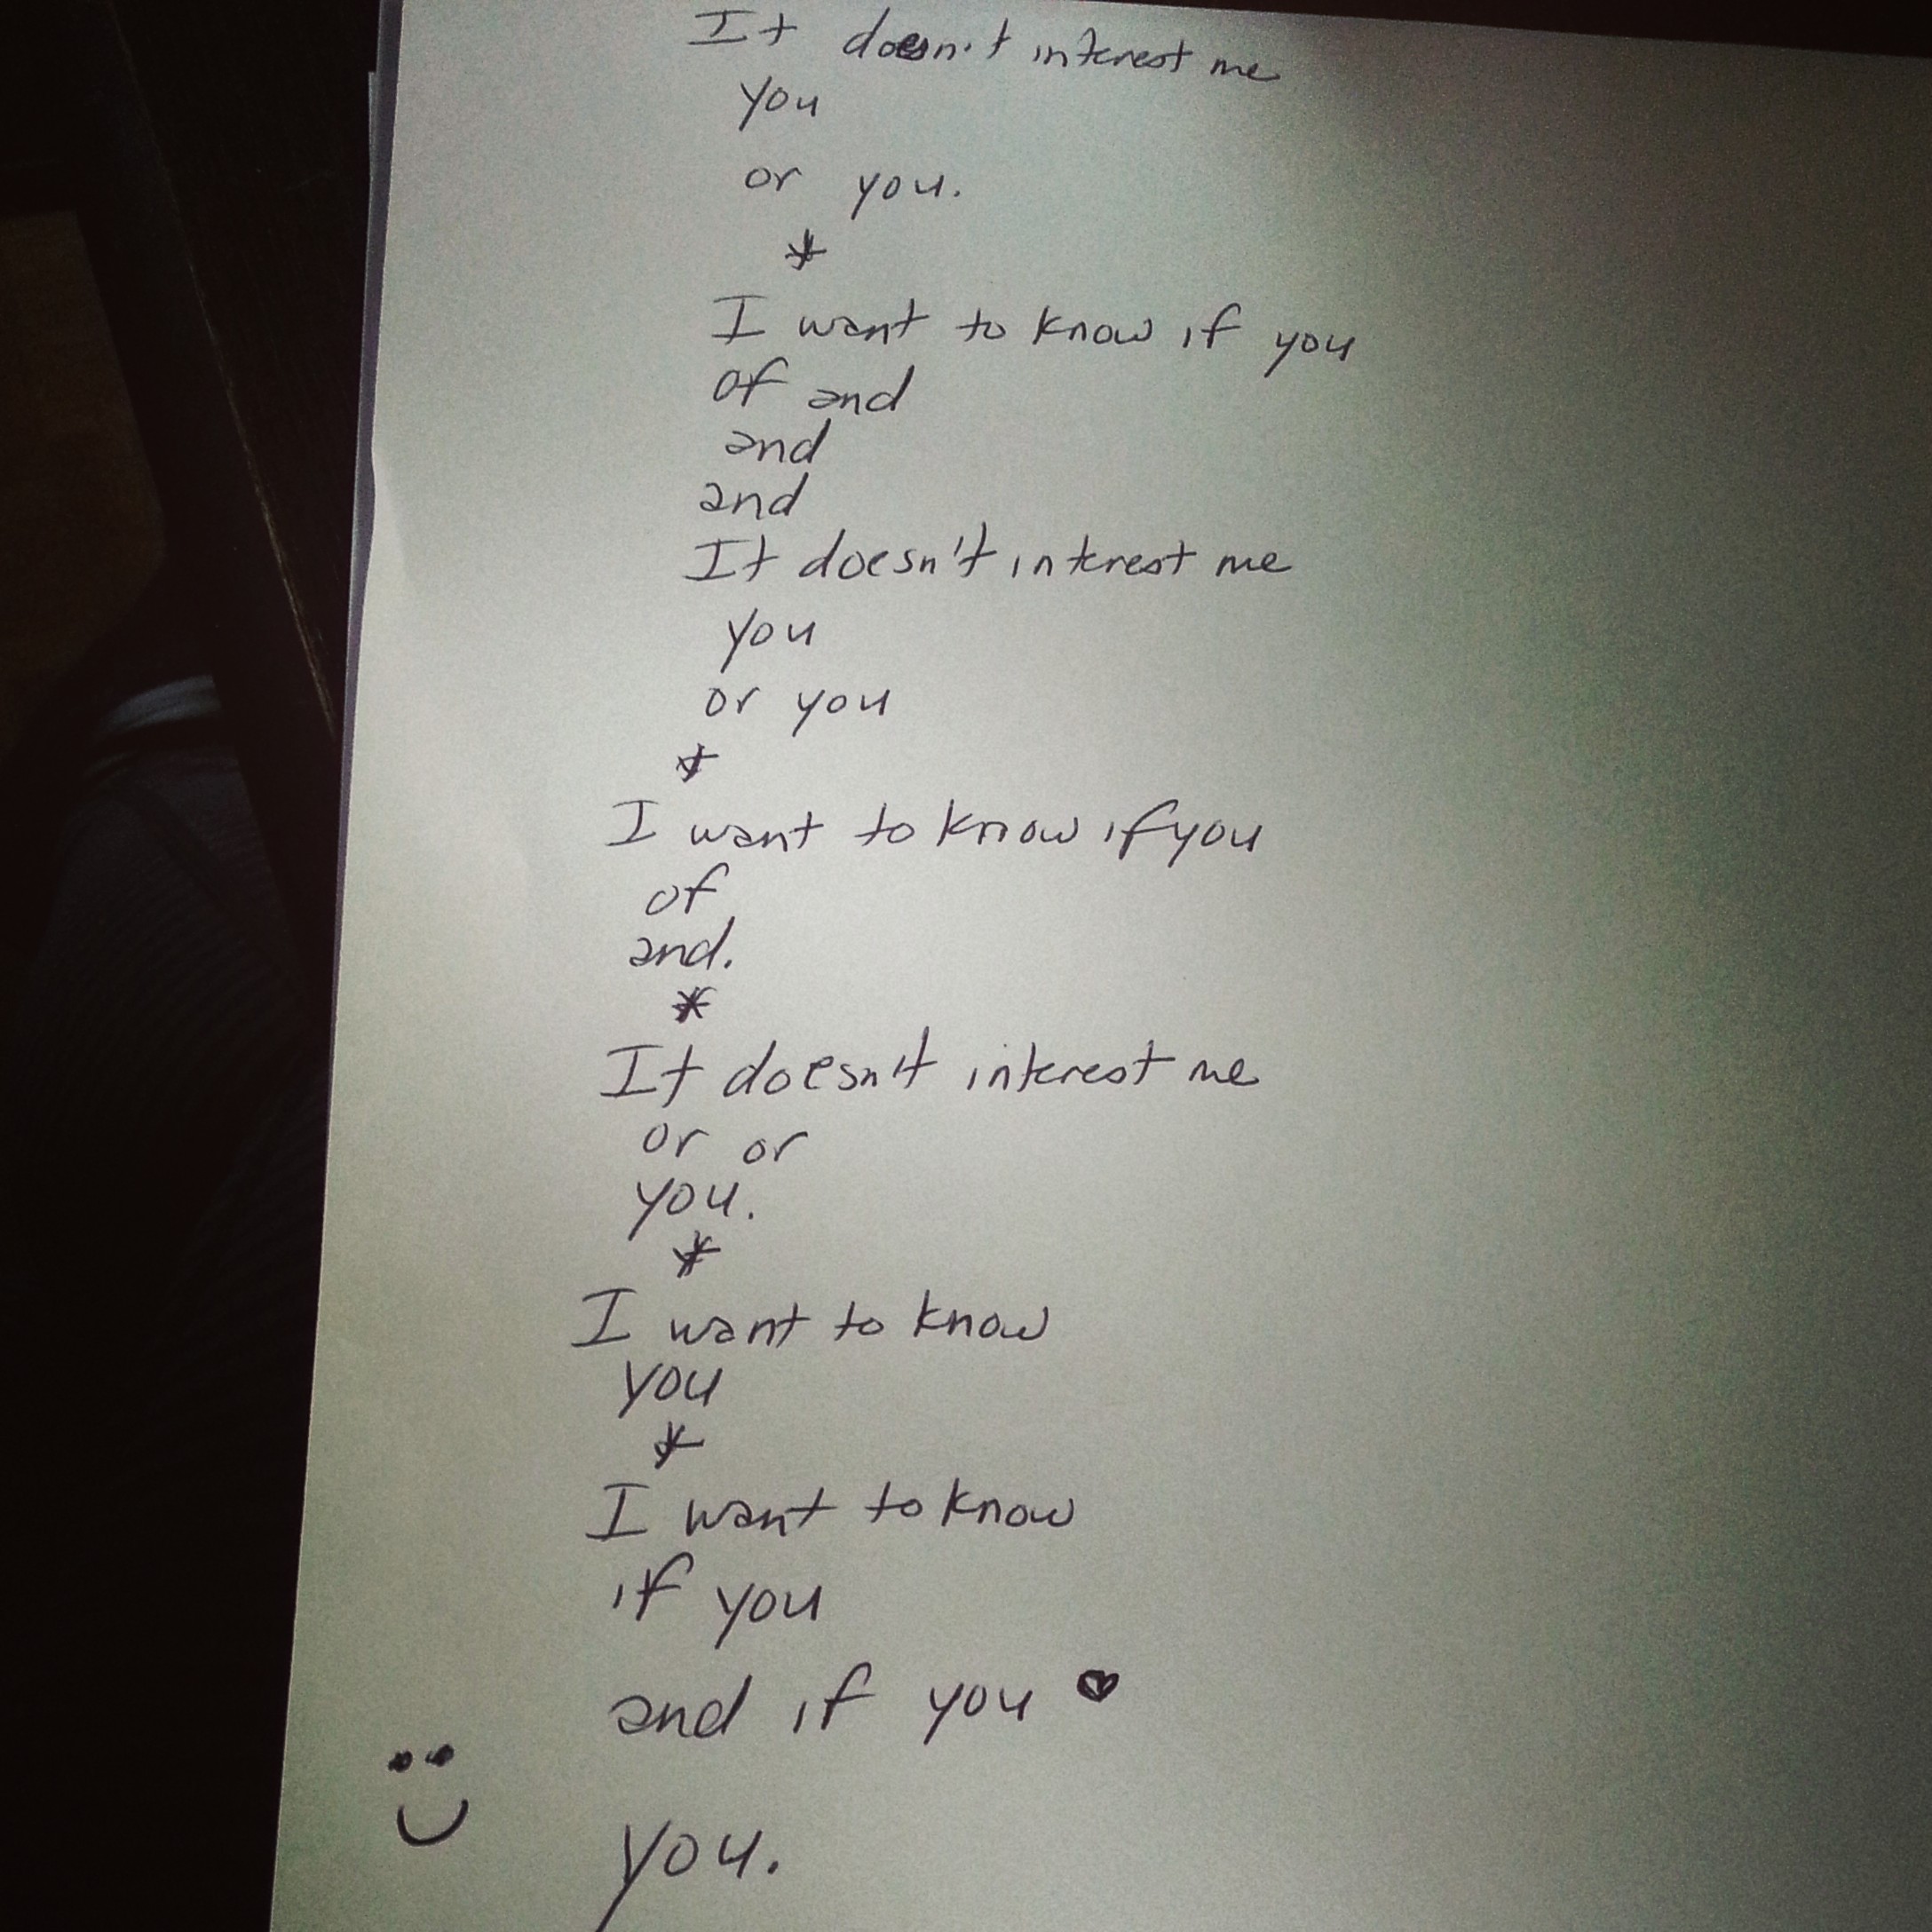 It doesn't interest me
you
or you.
*
I want to know if you
of and
and
and
It doesn't interest me
you
or you
*
I want to know if you
of
and.
*
It doesn't interest me
or or
you.
*
I want to know
you
*
I want to know
if you
and if you ♥
you.